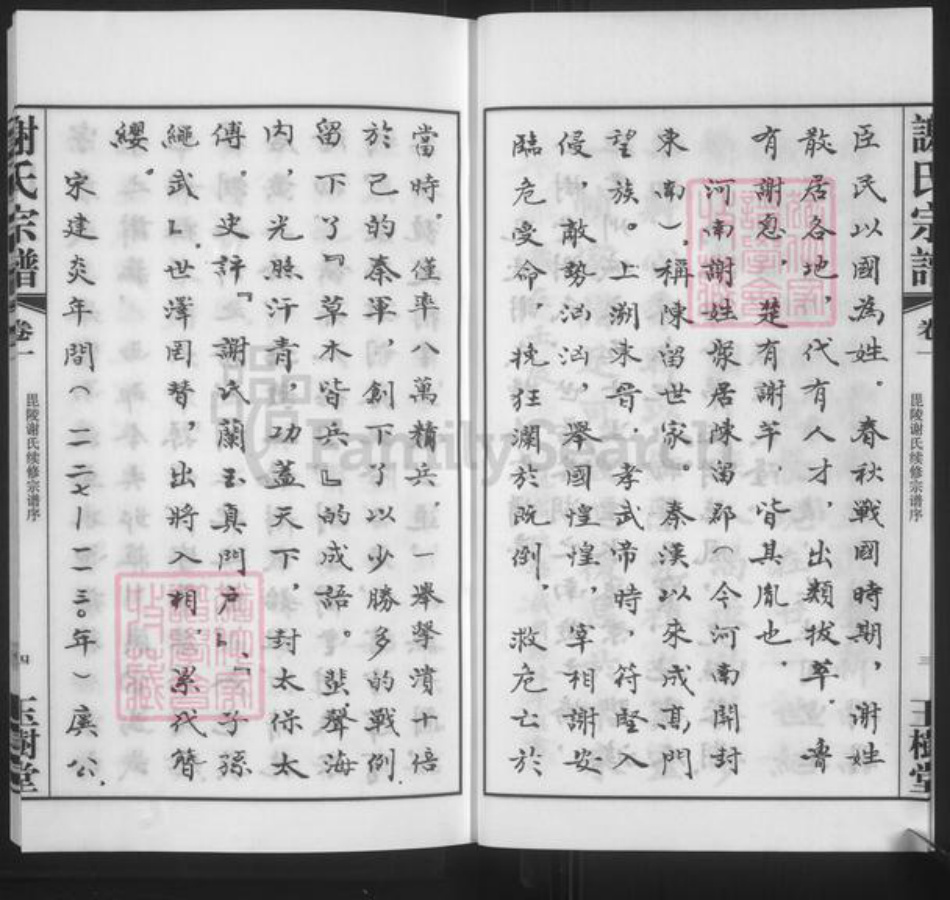 謝氏宗譜
卷一
毘陵谢氏续修宗谱序
三
玉樹堂
臣民以國為姓。春秋戰國時期,謝姓
散居各地,代有人才,出類拔萃。魯
有謝息,楚有謝芊,皆其胤也。
河南謝姓,聚居陳留郡(今河南開封
東南),稱陳留世家。秦漢以來成高門
望族。上溯東晉,孝武帝時,符堅入
侵,敵勢汹汹,舉國惶惶,宰相謝安
臨危受命,挽狂瀾於既倒,救危亡於
當時。僅率八萬精兵,一舉擊潰十倍
於己的秦軍,創下了以少勝多的戰例
留下了『草木皆兵』的成語。蜚聲海
内,光照汗青,功蓋天下,封太保太
傅。史評『謝氏蘭玉真門户』,『子孫
繩武』。世澤罔替,出將入相,累代簪
纓。
宋建炎年間(一一二七—一一三〇年)廣公
謝氏宗譜
卷一
毘陵谢氏续修宗谱序
四
玉樹堂
FamilySearch